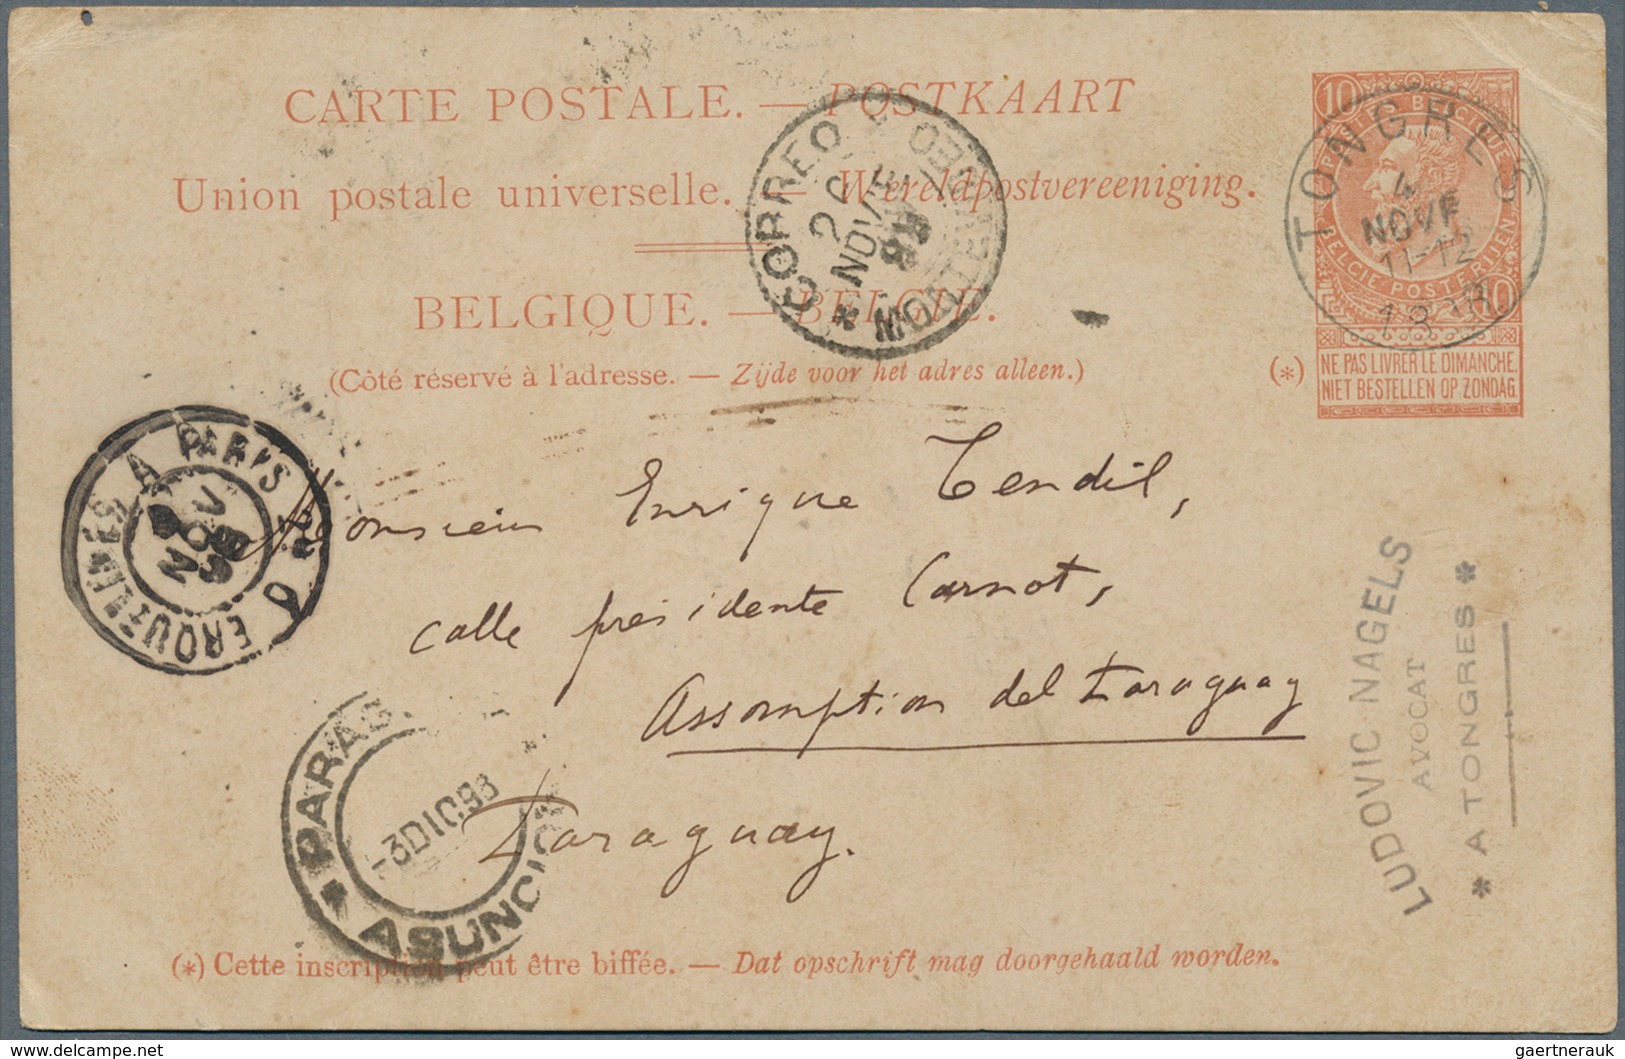 CARTE POSTALE. — POSTKAART
Union postale universelle. — Wereldpostvereeniging.
BELGIQUE. — BELGIE.
(Côté réservé à l'adresse. — Zijde voor het adres alleen.)
10 10
BELGIE POSTERIJEN
(*) NE PAS LIVRER LE DIMANCHE.
NIET BESTELLEN OP ZONDAG.
TONGRES
4
NOVE
11-12
CORREO
NOVE
98
MONTEVIDEO
ERQUELINES A PARIS
NOV
98
Monsieur Enrique Tendil,
calle presidente Carnot,
Assomption del Paraguay
Paraguay.
PARAG
-3DIC.98
ASUNCION
LUDOVIC NAGELS
AVOCAT
* A TONGRES *
(*) Cette inscription peut être biffée. — Dat opschrift mag doorgehaald worden.
www.delcampe.net
gaertnerauk